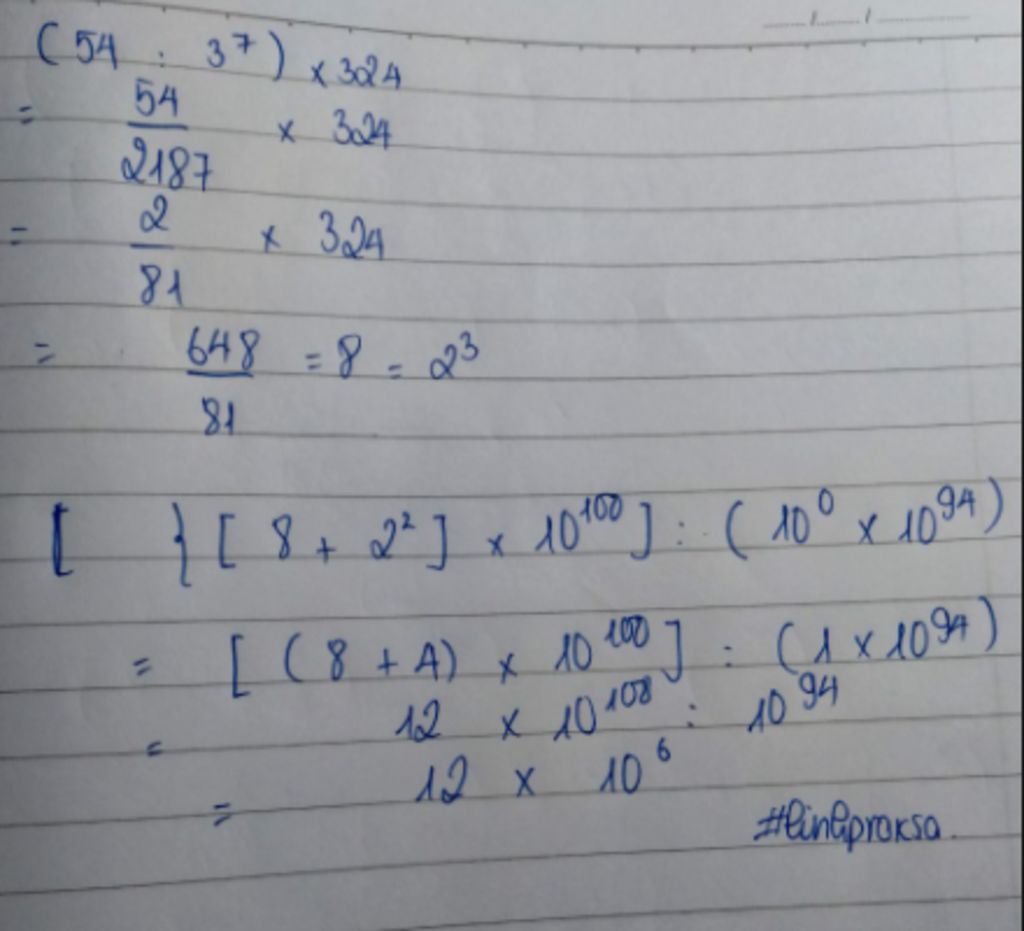 (54 : 3⁷) × 324
= 54/2187 × 324
= 2/81 × 324
= 648/81 = 8 = 2³
[ } [ 8 + 2² ] × 10¹⁰⁰ ] : ( 10⁰ × 10⁹⁴ )
= [ ( 8 + 4 ) × 10¹⁰⁰ ] : ( 1 × 10⁹⁴ )
= 12 × 10¹⁰⁰ : 10⁹⁴
= 12 × 10⁶